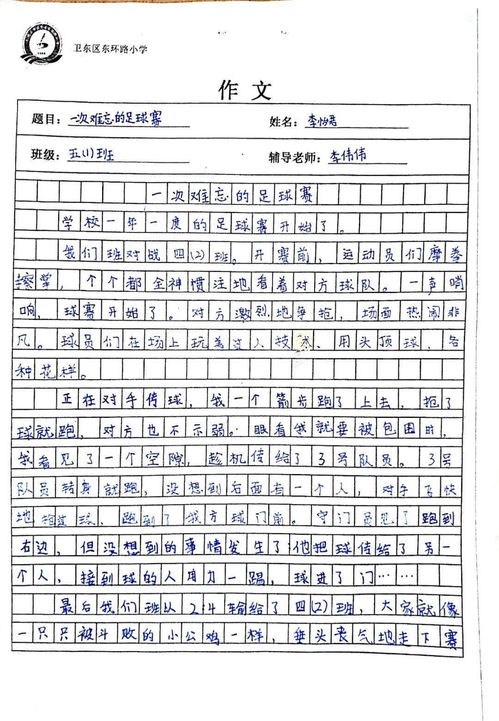 卫东区东环路小学
作文
题目：一次难忘的足球赛 姓名：李怡君
班级：五(1)班 辅导老师：李伟伟
一次难忘的足球赛
学校一年一度的足球赛开始了。
我们班对战四(2)班。开赛前，运动员们摩拳
擦掌，个个都全神惯注地看着对方球队。一声哨
响，球赛开始了。对方激烈地争抢，场面热闹非
凡。球员们在场上玩着过人技术，用头顶球，各
种花样。
正在对手传球，我一个箭步跑了上去，抢了
球就跑，对方也不示弱。眼看我就要被包围时，
我看见了一个空隙，趁机传给了3号队员。3号
队员转身就跑，没想到后面有一个人，对手飞快
地抢过球，跑到了我方球门前。守门员见了跑到
右边，但没想到的事情发生了：他把球传给了另一
个人，接到球的人用力一踢，球进了门……
最后我们班以2:4输给了四(2)班，大家就像
一只只被斗败的小公鸡一样，垂头丧气地走下赛